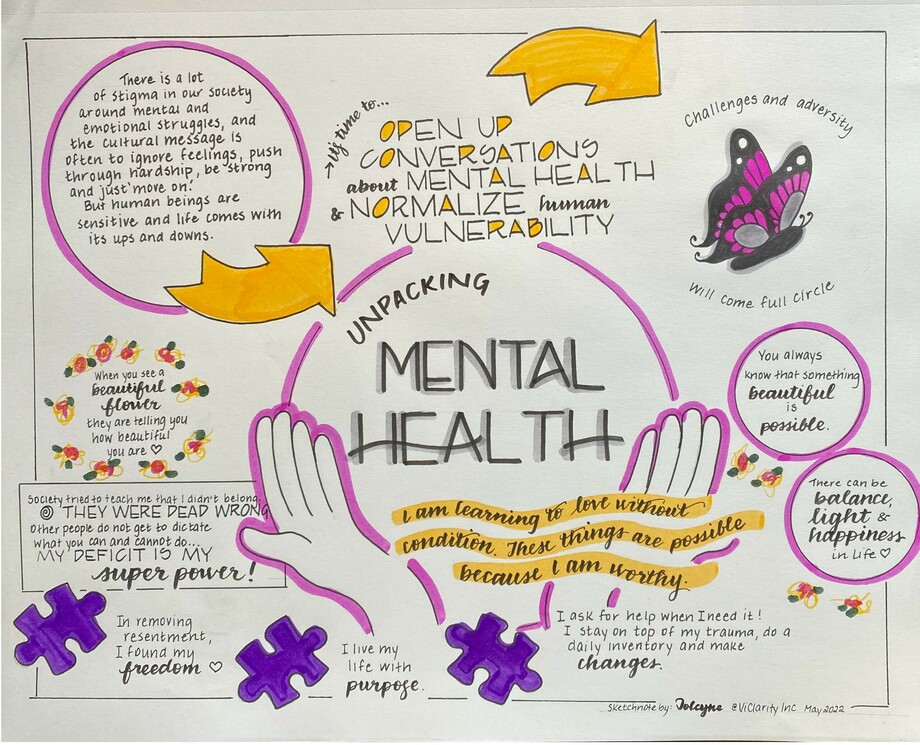 There is a lot
of stigma in our society
around mental and
emotional struggles, and
the cultural message is
often to ignore feelings, push
through hardship, be strong
and just move on.
But human beings are
sensitive and life comes with
its ups and downs.
It's time to...
OPEN UP
CONVERSATIONS
about MENTAL HEALTH
& NORMALIZE human
VULNERABILITY
Challenges and adversity
Will come full circle
UNPACKING
MENTAL
HEALTH
When you see a
beautiful
flower
they are telling you
how beautiful
you are ♡
You always
know that something
beautiful
is
possible.
There can be
balance,
light &
happiness
in life ♡
Society tried to teach me that I didn't belong
THEY WERE DEAD WRONG
Other people do not get to dictate
what you can and cannot do...
MY DEFICIT IS MY
super power!
I am learning to love without
condition. These things are possible
because I am worthy.
In removing
resentment,
I found my
freedom ♡
I live my
life with
purpose.
I ask for help when I need it!
I stay on top of my trauma, do a
daily inventory and make
changes.
Sketchnote by: Jolcyne @ViClarity Inc May 2022